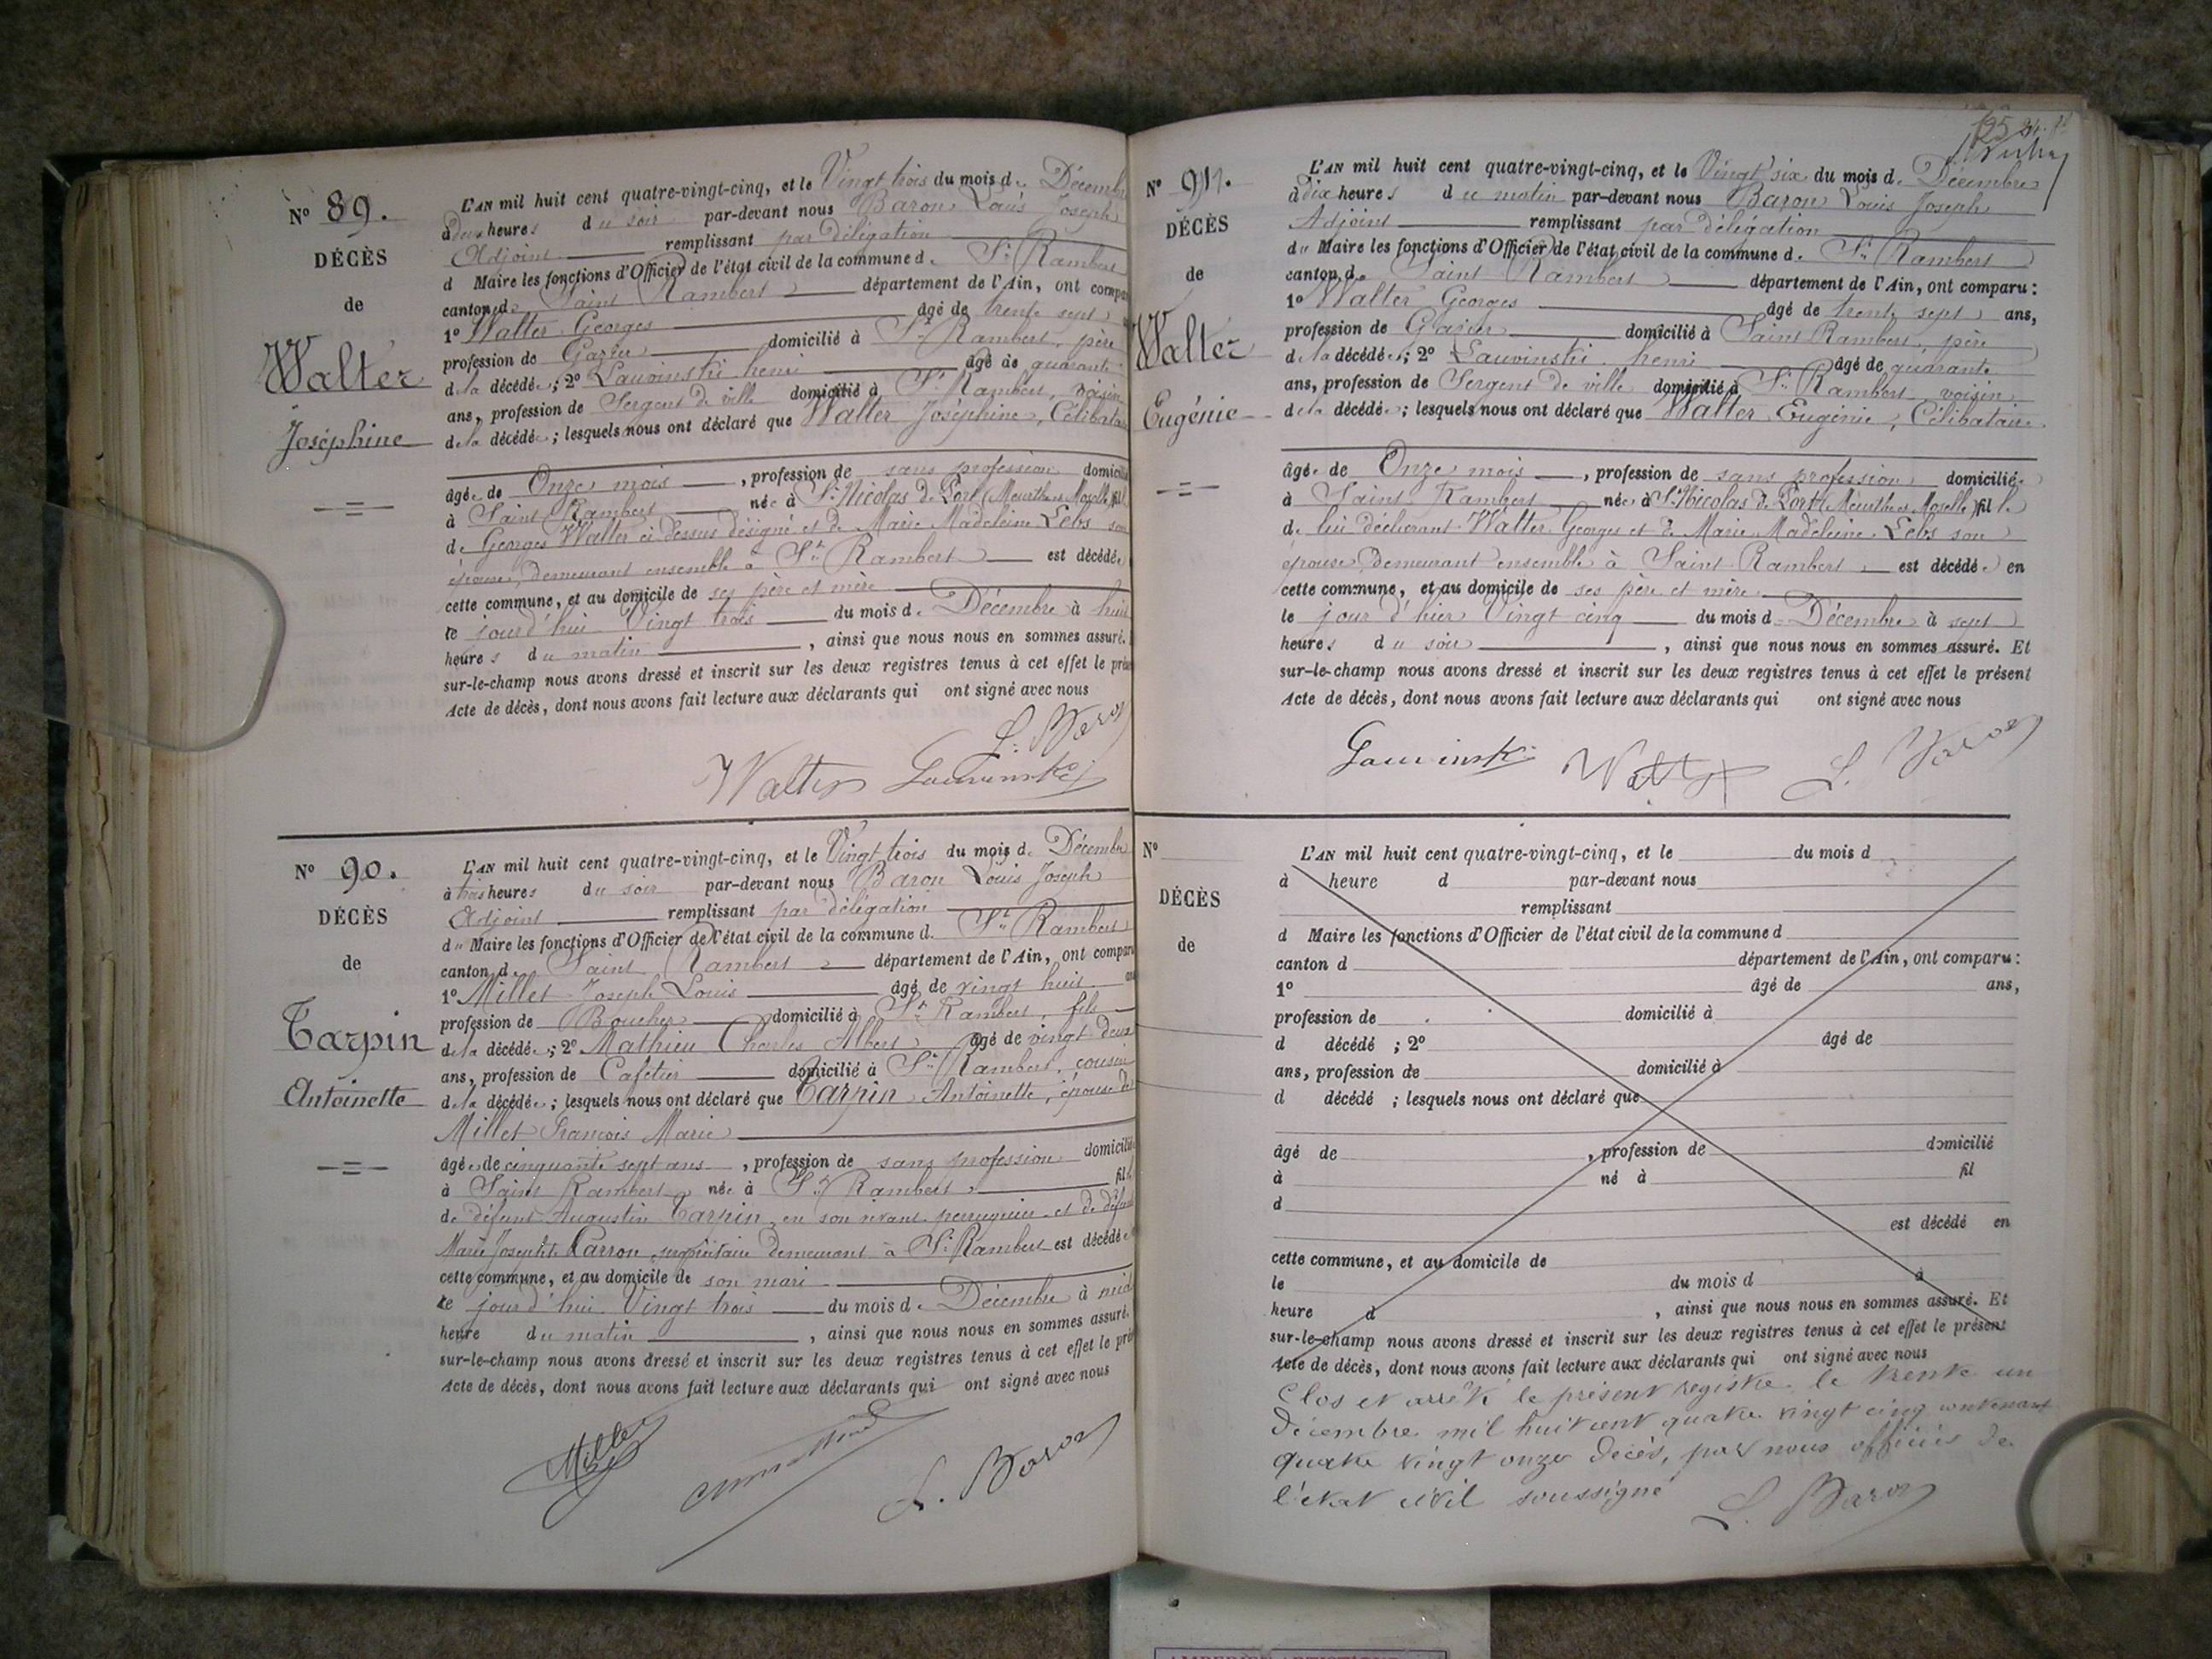 N° 89.
DÉCÈS
de
Walter
Joséphine
L'AN mil huit cent quatre-vingt-cinq, et le Vingt trois du mois de Décembre
à deux heures du soir par-devant nous Baron Louis Joseph
Adjoint remplissant par délégation
d Maire les fonctions d'Officier de l'état civil de la commune de St Rambert
canton de Saint Rambert département de l'Ain, ont compa
1° Walter Georges âgé de trente sept
profession de Gazier domicilié à St Rambert, père
de la décédée; 2° Lauvinski henri âgé de quarante
ans, profession de Sergent de ville domicilié à St Rambert, voisin
de la décédée; lesquels nous ont déclaré que Walter Joséphine, Célibataire
âgée de Onze mois, profession de sans profession domicilié
à Saint Rambert née à St Nicolas de Port (Meurthe et Moselle) fil
de Georges Walter ci dessus désigné et de Marie Madeleine Lebs son
épouse, demeurant ensemble à St Rambert est décédée
cette commune, et au domicile de ses père et mère
le jourd'hui Vingt trois du mois de Décembre à huit
heures du matin, ainsi que nous nous en sommes assuré.
sur-le-champ nous avons dressé et inscrit sur les deux registres tenus à cet effet le prés
Acte de décès, dont nous avons fait lecture aux déclarants qui ont signé avec nous
L. Baron
Walter Lauvinski
N° 90.
DÉCÈS
de
Tarpin
Antoinette
L'AN mil huit cent quatre-vingt-cinq, et le Vingt trois du mois de Décembre
à trois heures du soir par-devant nous Baron Louis Joseph
Adjoint remplissant par délégation
du Maire les fonctions d'Officier de l'état civil de la commune de St Rambert
canton de Saint Rambert département de l'Ain, ont comparu
1° Millet Joseph Louis âgé de vingt huit an
profession de Boucher domicilié à St Rambert, fils
de la décédée; 2° Mathieu Charles Albert âgé de vingt deux
ans, profession de Cafetier domicilié à St Rambert, cousin
de la décédée; lesquels nous ont déclaré que Tarpin Antoinette, épouse de
Millet François Marie
âgée de cinquante sept ans, profession de sans profession domicilié
à Saint Rambert née à St Rambert fil
de défunt Augustin Tarpin, en son vivant perruquier et de défunte
Marie Josephte Carron, propriétaire demeurant à St Rambert est décédée
cette commune, et au domicile de son mari
le jourd'hui Vingt trois du mois de Décembre à midi
heure du matin, ainsi que nous nous en sommes assuré.
sur-le-champ nous avons dressé et inscrit sur les deux registres tenus à cet effet le pré
Acte de décès, dont nous avons fait lecture aux déclarants qui ont signé avec nous
Millet
L. Baron
N° 91.
DÉCÈS
de
Walter
Eugénie
L'AN mil huit cent quatre-vingt-cinq, et le Vingt six du mois de Décembre
à dix heures du matin par-devant nous Baron Louis Joseph
Adjoint remplissant par délégation
du Maire les fonctions d'Officier de l'état civil de la commune de St Rambert
canton de Saint Rambert département de l'Ain, ont comparu :
1° Walter Georges âgé de trente sept ans,
profession de Gazier domicilié à Saint Rambert, père
de la décédée; 2° Lauvinski henri âgé de quarante
ans, profession de Sergent de ville domicilié à St Rambert voisin
de la décédée; lesquels nous ont déclaré que Walter Eugénie, Célibataire
âgée de Onze mois, profession de sans profession domiciliée
à Saint Rambert née à St Nicolas de Port (Meurthe et Moselle) fille
de lui déclarant Walter Georges et de Marie Madeleine Lebs son
épouse, demeurant ensemble à Saint Rambert est décédée en
cette commune, et au domicile de ses père et mère
le jour d'hier Vingt cinq du mois de Décembre à sept
heures du soir, ainsi que nous nous en sommes assuré. Et
sur-le-champ nous avons dressé et inscrit sur les deux registres tenus à cet effet le présent
Acte de décès, dont nous avons fait lecture aux déclarants qui ont signé avec nous
Lauvinski Walter L. Baron
N°
DÉCÈS
de
L'AN mil huit cent quatre-vingt-cinq, et le du mois d
à heure d par-devant nous
remplissant
d Maire les fonctions d'Officier de l'état civil de la commune d
canton d département de l'Ain, ont comparu :
1° âgé de ans,
profession de domicilié à
d décédé ; 2° âgé de
ans, profession de domicilié à
d décédé ; lesquels nous ont déclaré que
âgé de , profession de domicilié
à né à fil
d
est décédé en
cette commune, et au domicile de
le du mois d à
heure d , ainsi que nous nous en sommes assuré. Et
sur-le-champ nous avons dressé et inscrit sur les deux registres tenus à cet effet le présent
Acte de décès, dont nous avons fait lecture aux déclarants qui ont signé avec nous
Clos et arrêté le présent registre le trente un
Décembre mil huit cent quatre vingt cinq contenant
quatre vingt onze décès, par nous officier de
l'état civil soussigné L. Baron